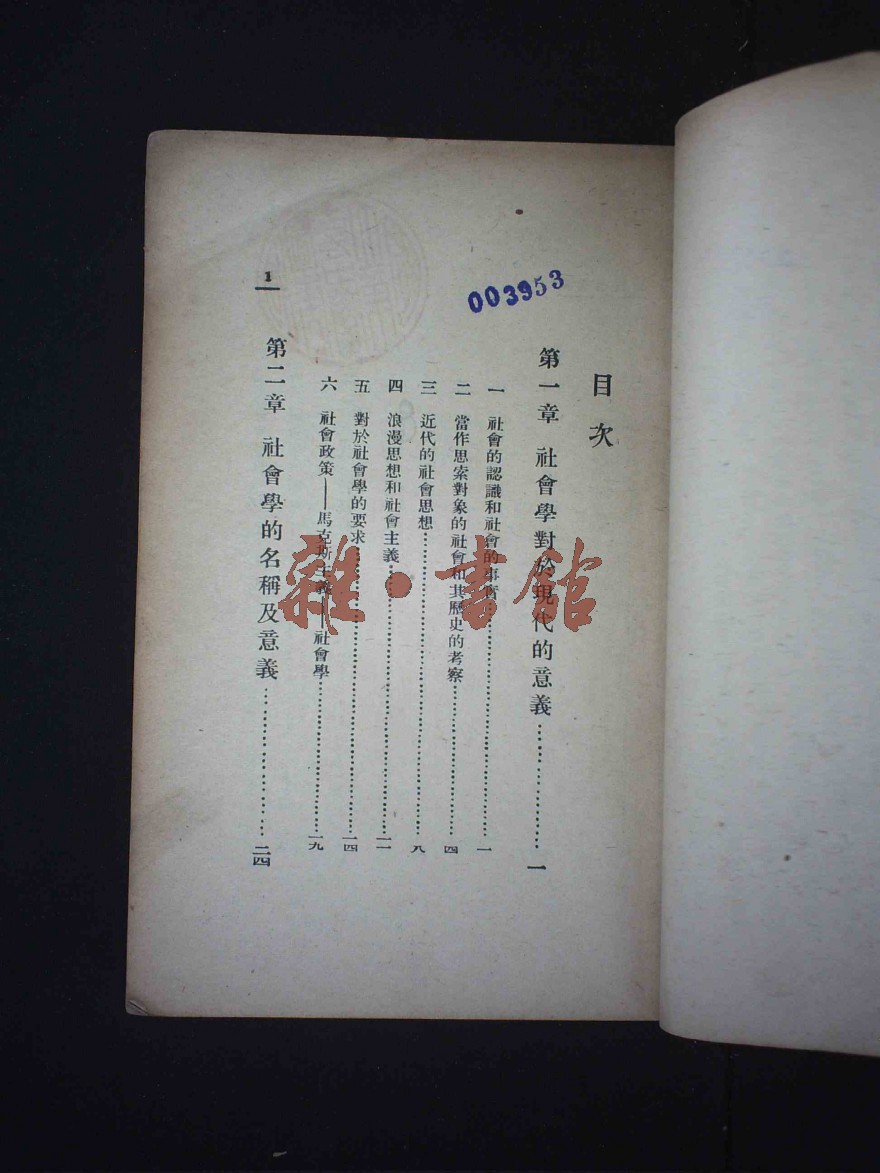 目次
第一章 社會學對於現代的意義……………一
一 社會的認識和社會的事實……………一
二 當作思索對象的社會和其歷史的考察……………四
三 近代的社會思想……………八
四 浪漫思想和社會主義……………一一
五 對於社會學的要求……………一四
六 社會政策——馬克斯主義——社會學……………一九
第二章 社會學的名稱及意義……………二四
1
003953
雜·書館